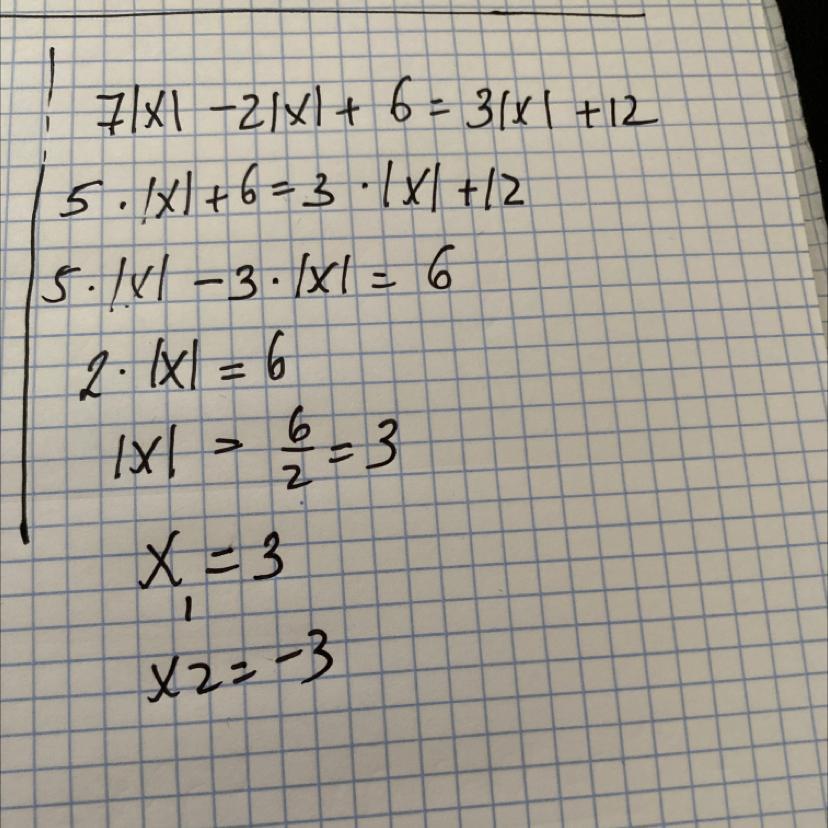 7|x| - 2|x| + 6 = 3|x| + 12
5 · |x| + 6 = 3 · |x| + 12
5 · |x| - 3 · |x| = 6
2 · |x| = 6
|x| = 6/2 = 3
x₁ = 3
x2 = -3